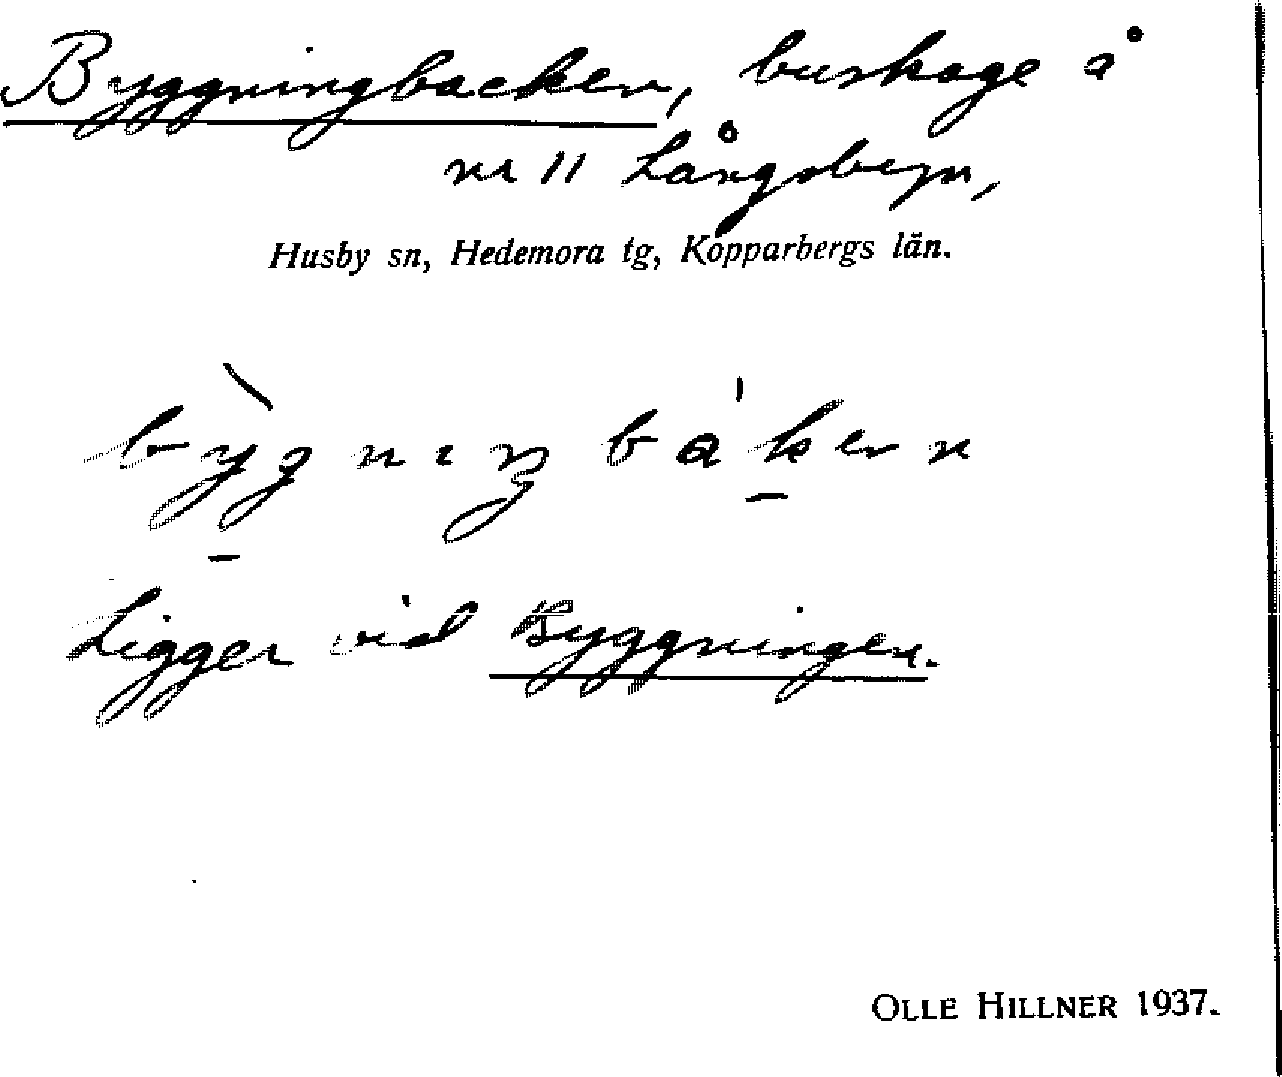 Byggningbacken, buskage å
nr 11 Långsbyn,
Husby sn, Hedemora tg, Kopparbergs län.
bỳgnıŋbáken
Ligger vid Byggningen.
OLLE HILLNER 1937.